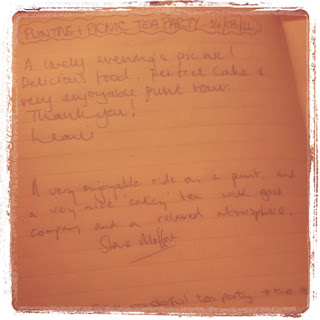 PUNTING + PICNIC TEA PARTY
A lovely evening's picnic!
Delicious food, perfect cake &
very enjoyable punt tour.
Thank you!
A very enjoyable ride on a punt, and
a very nice 'cakey' tea with good
company and a relaxed atmosphere.
Steve
wonderful tea party